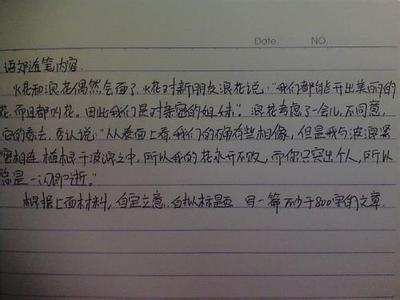 Date. NO.
语郊近笔内容.
火花和浪花偶然会面了,火花对新朋友浪花说:"我们都能开出美丽的
花,而且都叫花。因此我们是对亲密的姐妹"。浪花考虑了一会儿,不同意
的看法,否认说:"从表面上看,我们的确有些相像,但是我与波浪紧
密相连,植根于波浪之中,所以我的花永开不败,而你只突出个人,所以
总是一闪即逝。"
根据上面材料,自定立意,自拟标题 写一篇不少于800字的文章.